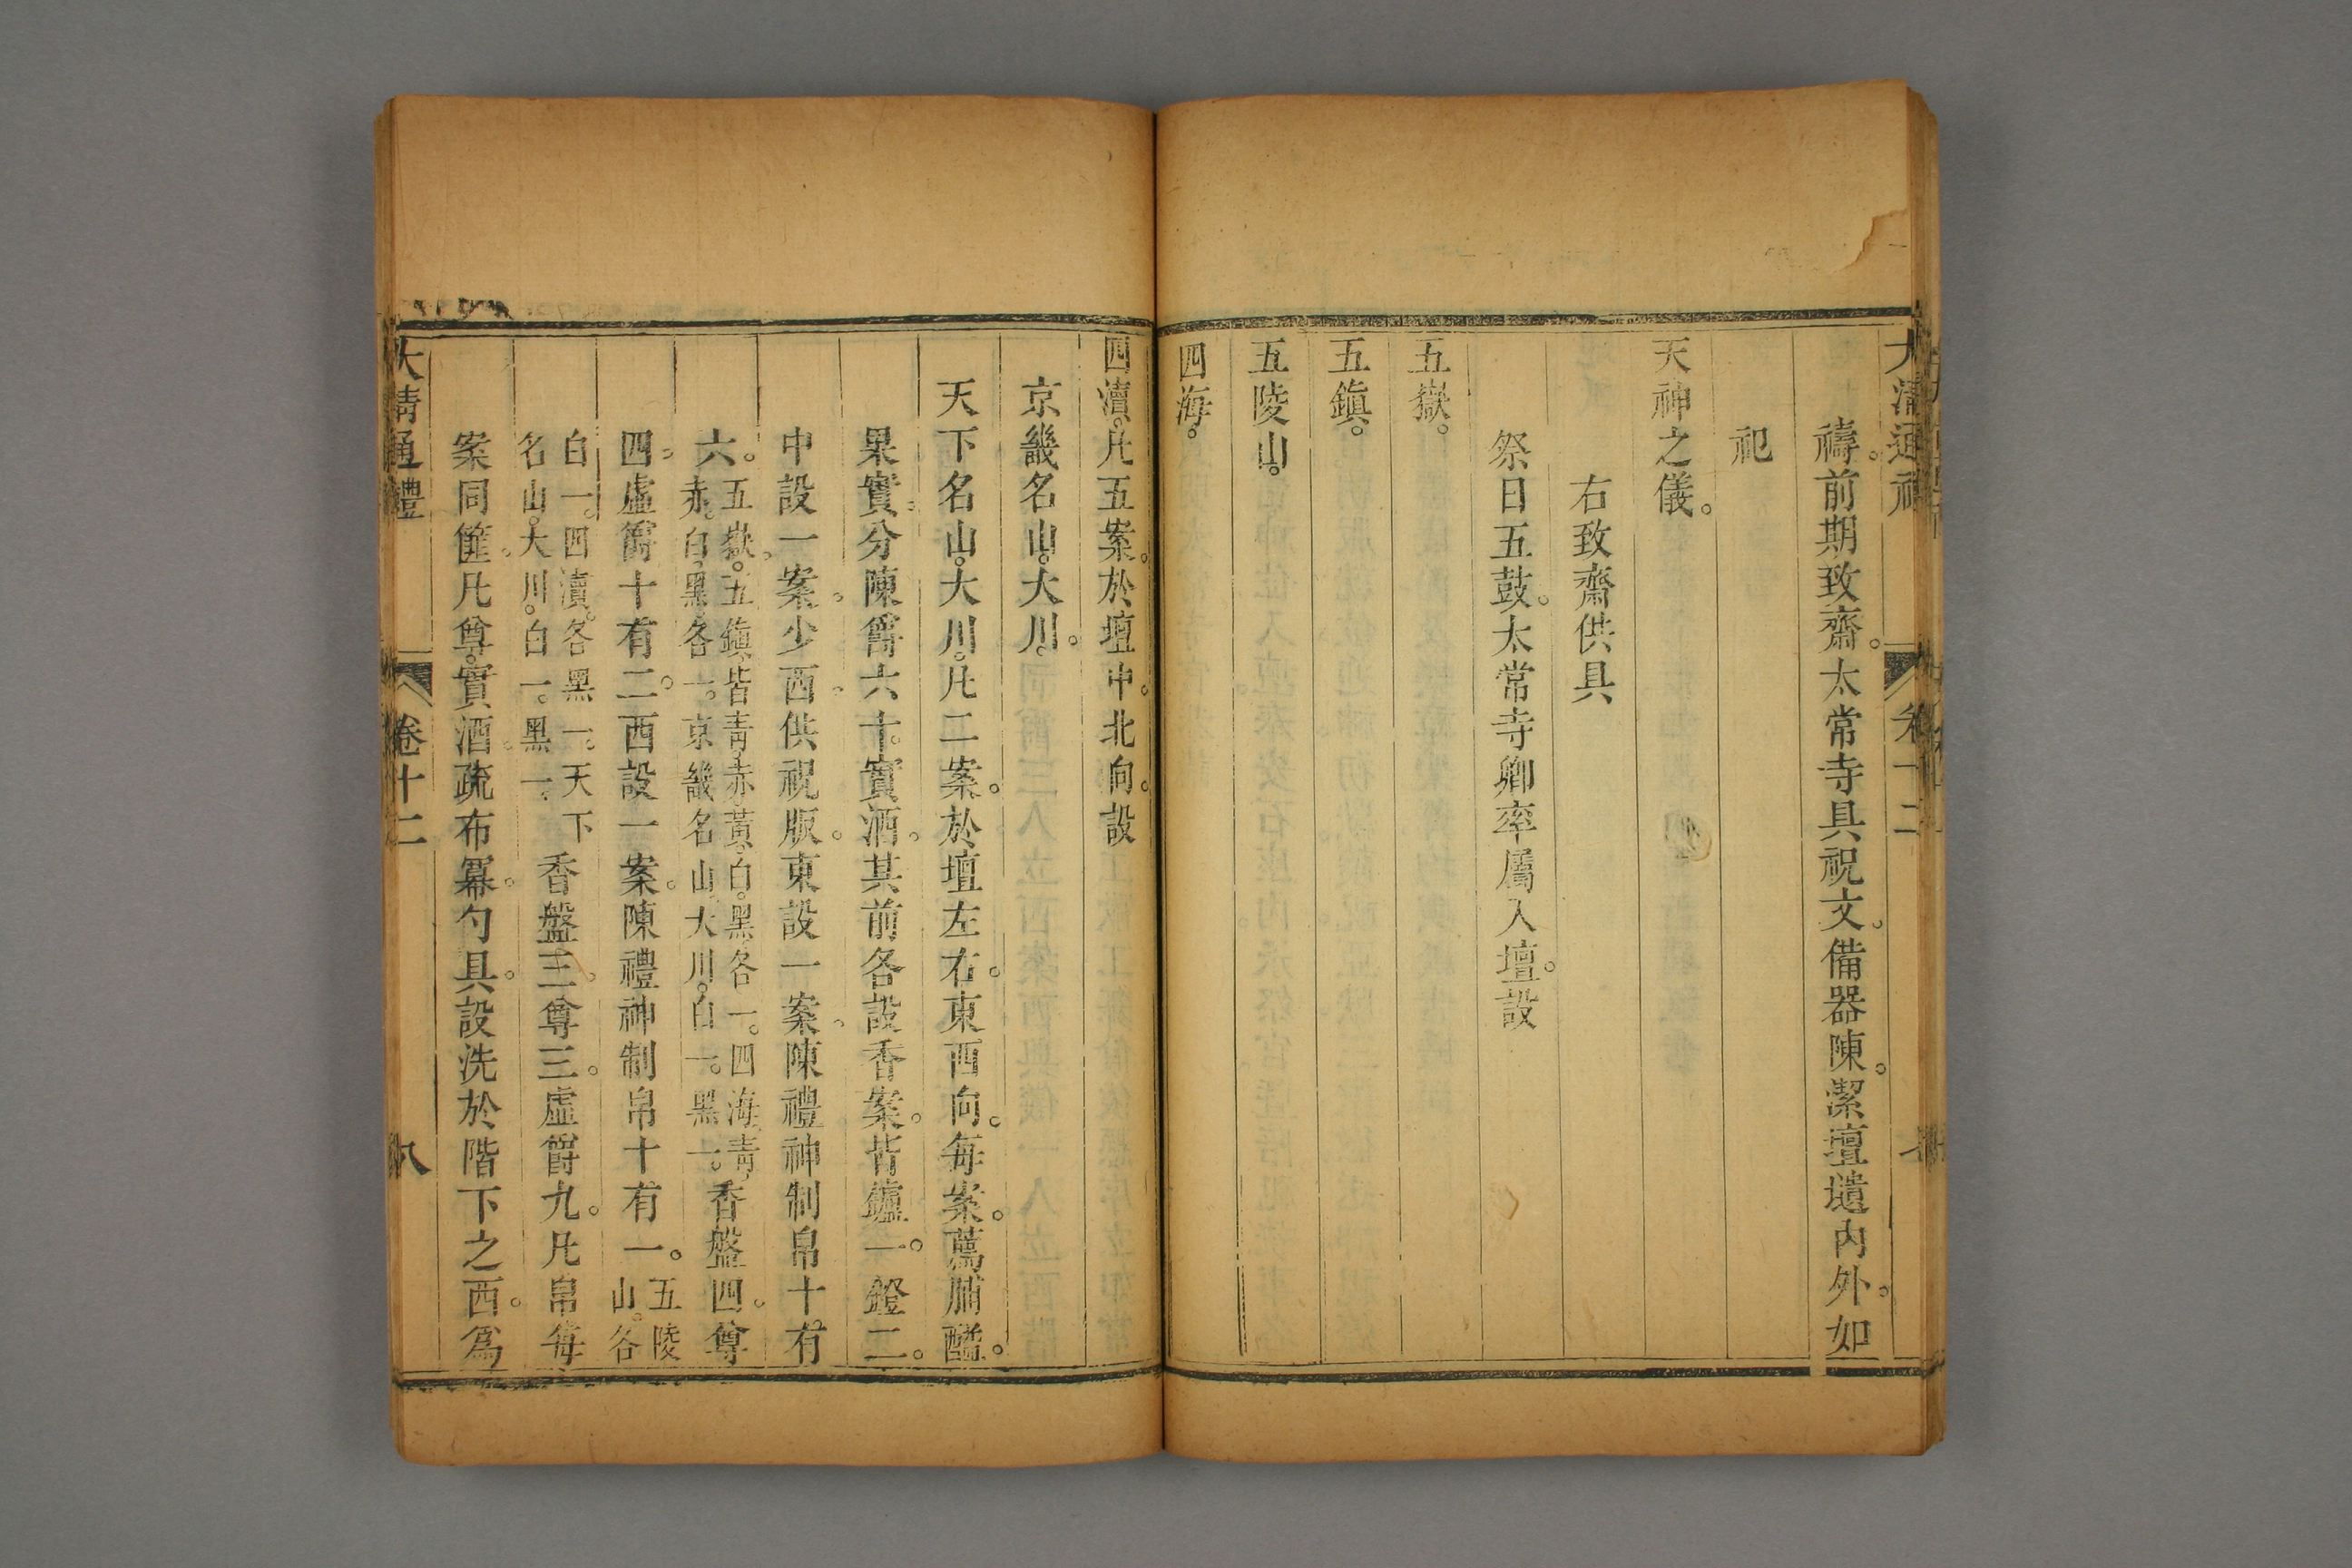 大清通禮 卷十二
禱。前期致齋。太常寺具祝文。備器陳。潔壇壝內外。如
祀
天神之儀。
右致齋供具
祭日五鼓。太常寺卿率屬入壇。設
五嶽。
五鎮。
五陵山。
四海。
四瀆。凡五案。於壇中。北向。設
京畿名山。大川。
天下名山。大川。凡二案。於壇左右。東西向。每案。薦脯醢。
果實。分陳爵六十。實酒。其前各設香案。皆鑪一。鐙二。
中設一案。少西。供祝版。東設一案。陳禮神制帛十有
六。五嶽。五鎮。皆青、赤、黃、白、黑各一。四海。青、赤、白、黑、各一。京畿名山、大川。白一。黑一。香盤四。尊
四。虛爵十有二。西設一案。陳禮神制帛十有一。五陵山。各
白一。四瀆。各黑一。天下名山。大川。白一。黑一。香盤三。尊三。虛爵九。凡帛每
案同篚。凡尊。實酒。疏布冪。勺具。設洗於階下之西。爲
大清通禮 卷十二 八